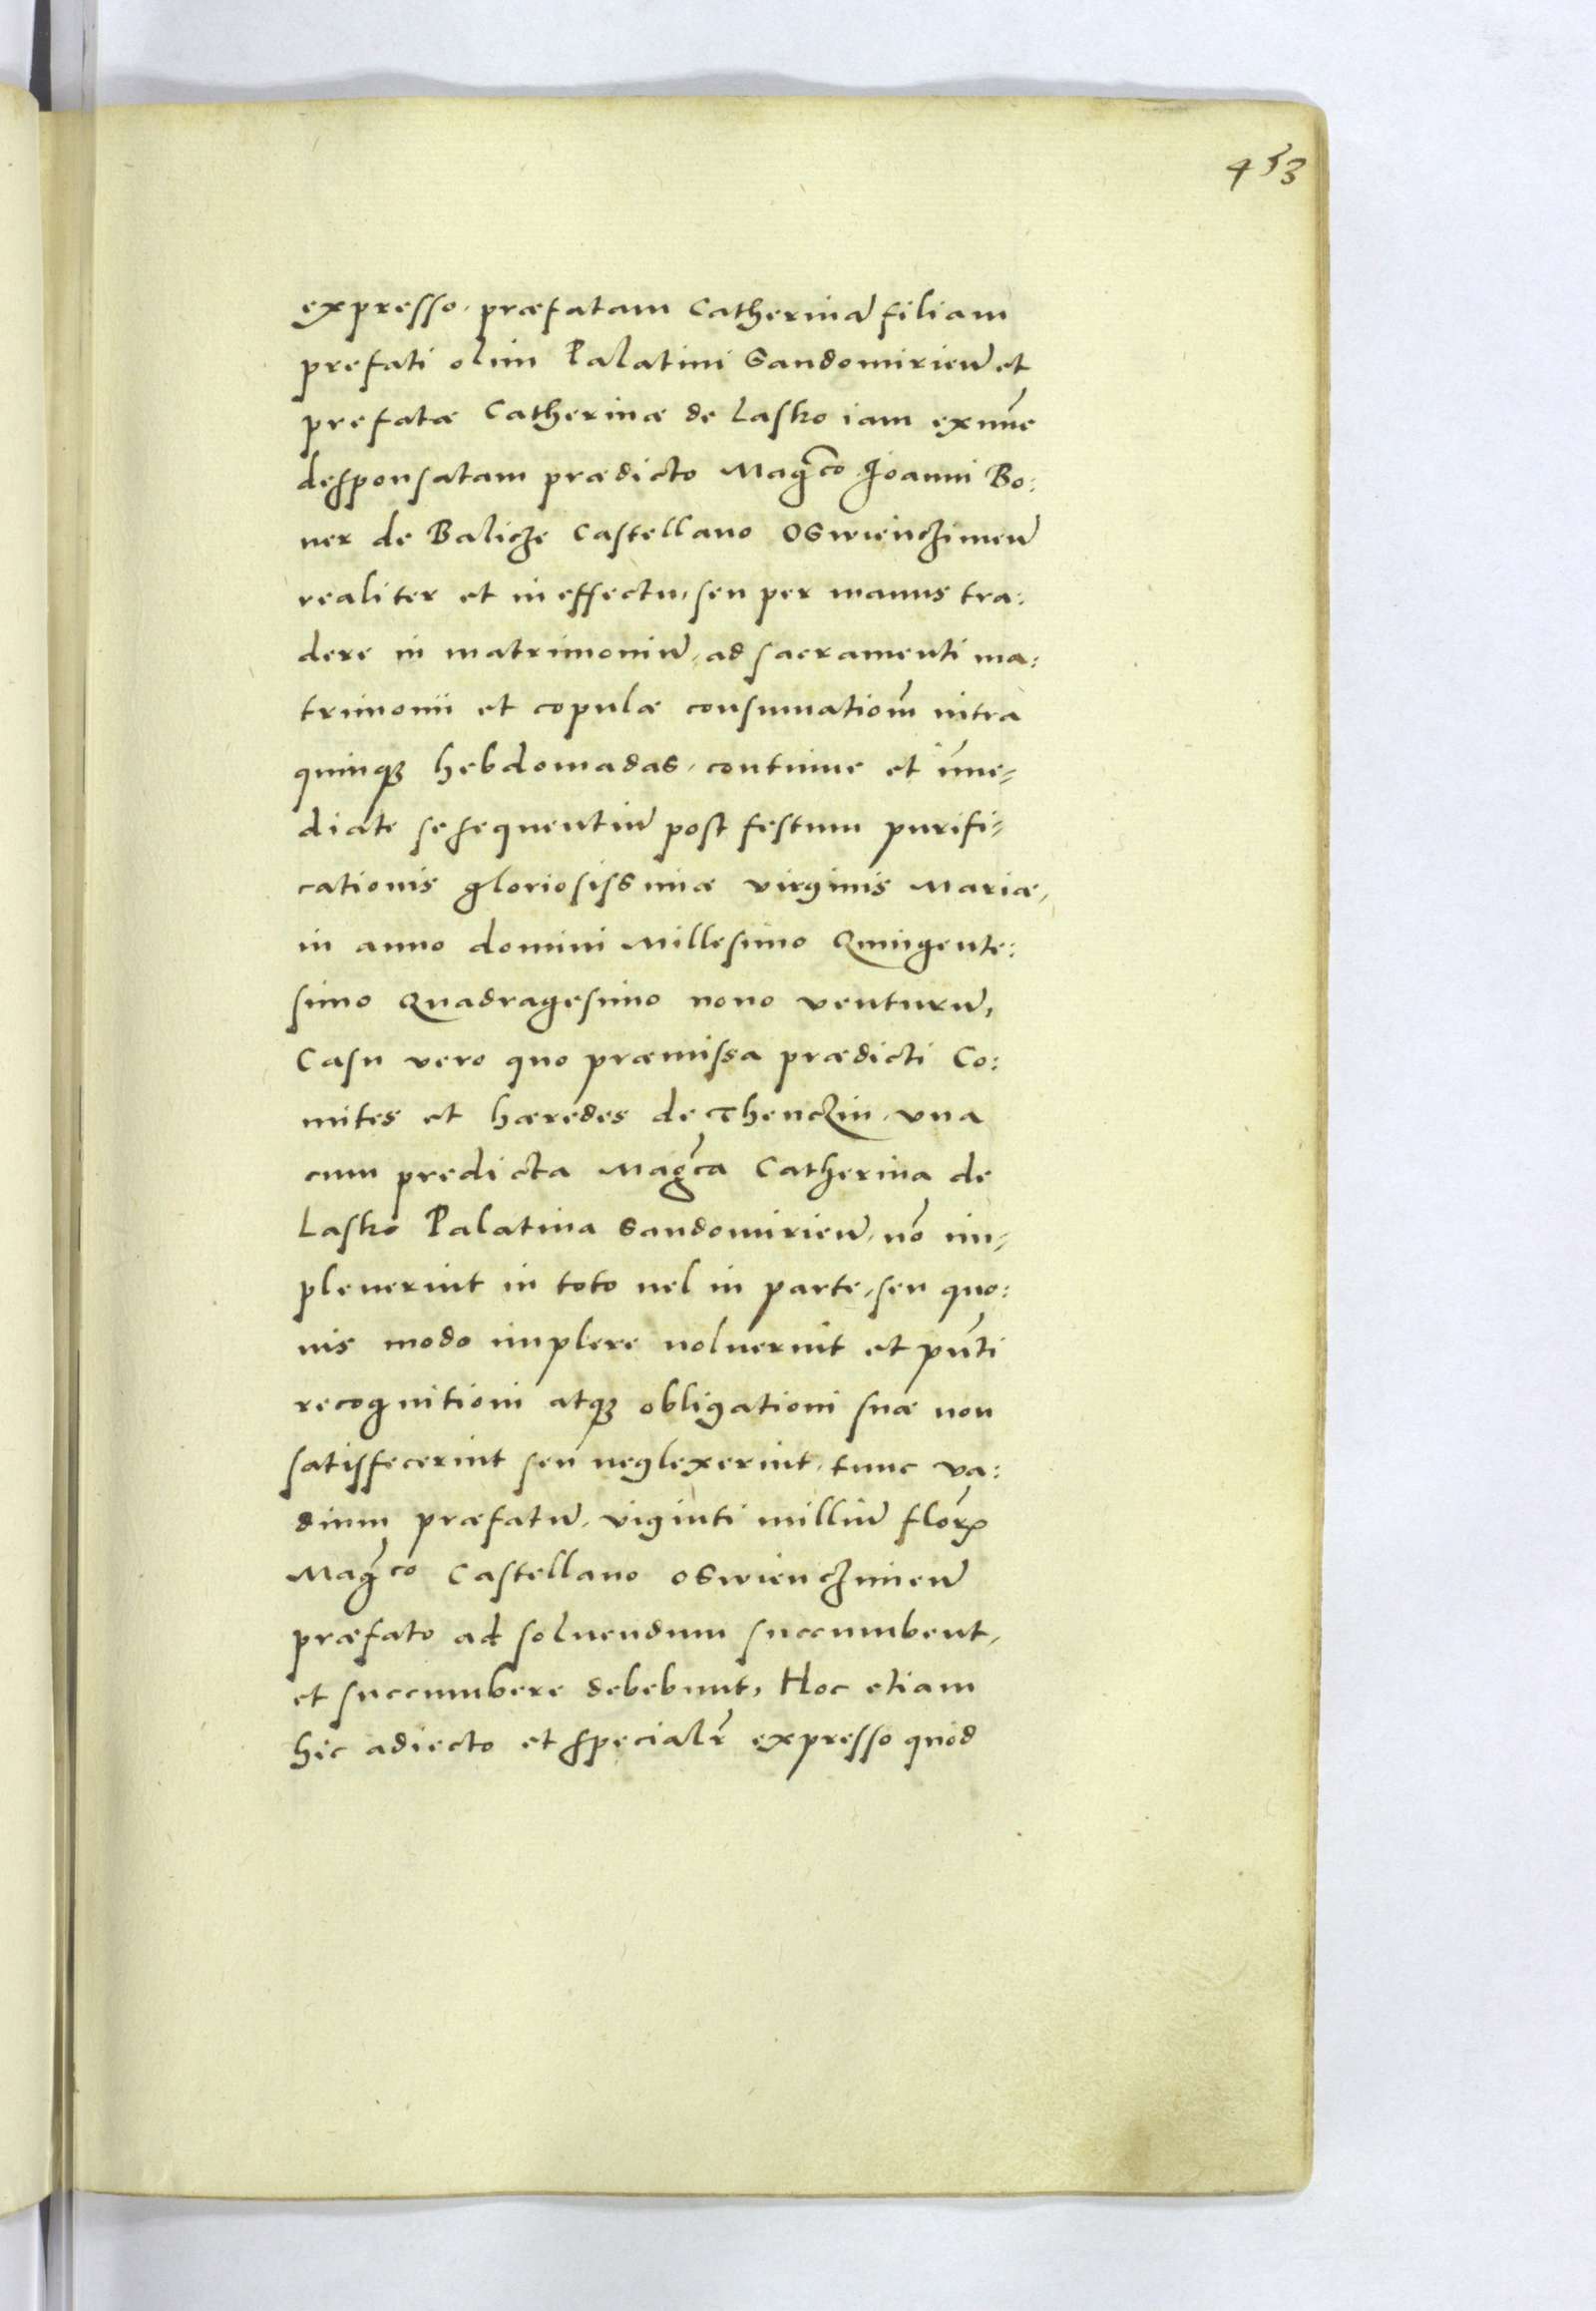 453
expresso, præfatam Catherinā filiam
prefati olim Palatini Sandomirieñ et
prefatæ Catherinæ de Lasko iam exnūc
desponsatam prædicto Mag̃co Joanni Bo:
ner de Balicze Castellano Oswienczimeñ
realiter et in effectu, seu per manus tra:
dere in matrimoniū, ad sacramenti ma:
trimonii et copulæ consumatiom̃ intra
quinqꝫ hebdomadas, continue et im̃e=
diate se sequentiū post festum purifi=
cationis gloriosissimæ virginis Mariæ,
in anno domini Millesimo Quingente:
simo Quadragesimo nono venturū,
Casu vero quo præmissa prædicti Co:
mites et hæredes de Thenczin, vna
cum predicta Mag̃ca Catherina de
Lasko Palatina Sandomirieñ, nõ im=
pleuerint in toto uel in parte, seu quo:
uis modo implere noluerint et pñti
recognitioni atqꝫ obligationi suæ non
satisfecerint seu neglexerint, tunc va:
dium præfatū, viginti milliū florꝝ
Mag̃co Castellano Oswienczimeñ
præfato ad soluendum succumbent,
et succumbere debebunt, Hoc etiam
hic adiecto et specialr̃ expresso quod